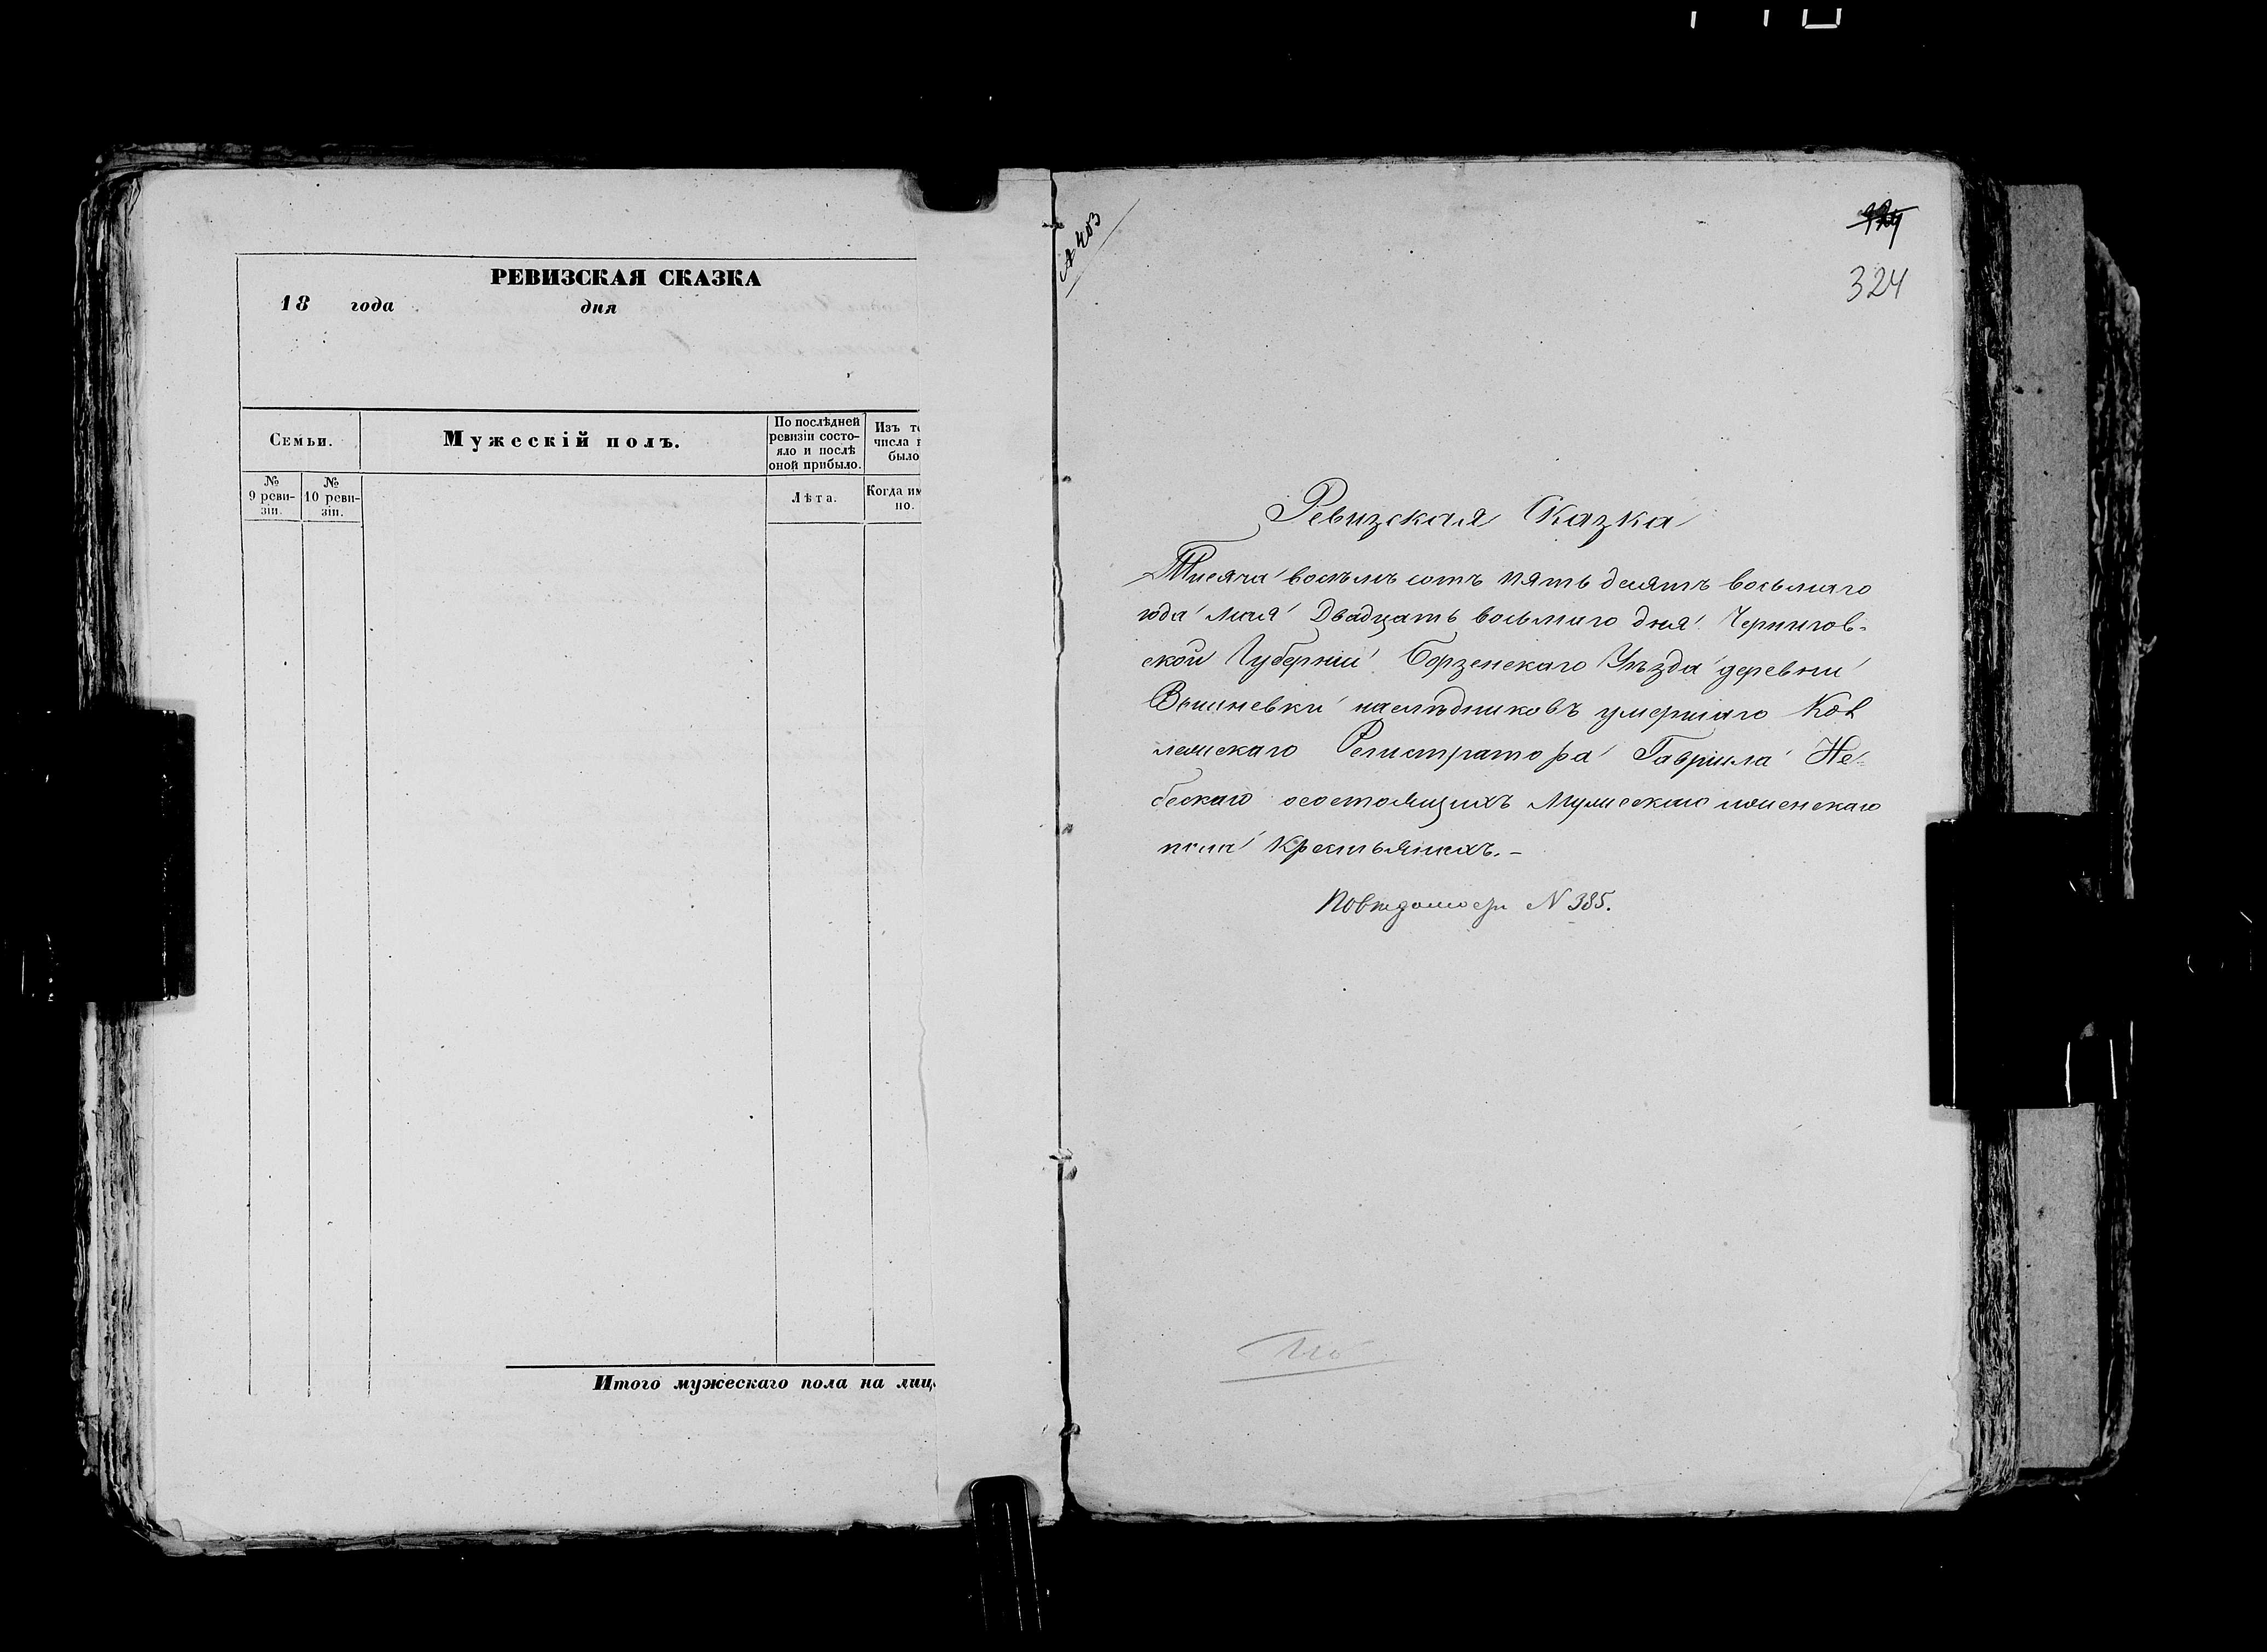 РЕВИЗСКАЯ СКАЗКА
18 года дня
Семьи.
Мужескій полъ.
По послѣдней
ревизіи состо-
яло и послѣ
оной прибыло.
Изъ т
числа
было
№
9 реви-
зіи.
№
10 реви-
зіи.
Лѣта.
Когда им
но.
Итого мужескаго пола на лиц
№ 403
324
Ревизская Сказка
Тисяча восъмъ сотъ пять десятъ восьмаго
года мая Двадцать восьмаго дня Чернигов-
ской Губерніи Борзенскаго Уѣзда деревни
наслѣдниковъ умершаго Кол
лежскаго Регистратора Гавриила Не-
бескаго осостоящихъ Мужескаго иженскаго
пола Крестьянахъ.-
Повѣдомости N 385.